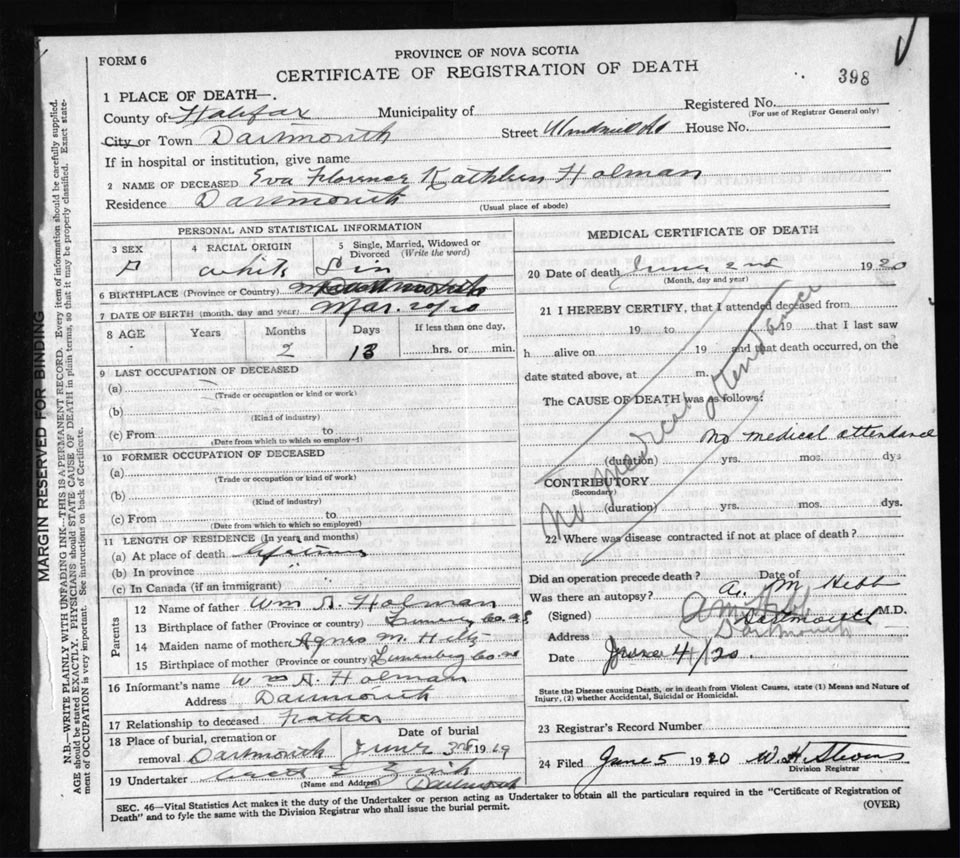 FORM 6
PROVINCE OF NOVA SCOTIA
CERTIFICATE OF REGISTRATION OF DEATH
398
1 PLACE OF DEATH—
County of Halifax Municipality of Registered No.
(For use of Registrar General only)
City or Town Dartmouth Street House No.
If in hospital or institution, give name
2 NAME OF DECEASED Eva Florence Kathleen Holman
Residence Dartmouth (Usual place of abode)
PERSONAL AND STATISTICAL INFORMATION
3 SEX 4 RACIAL ORIGIN 5 Single, Married, Widowed or Divorced (Write the word)
F white Sin
6 BIRTHPLACE (Province or Country) Dartmouth
7 DATE OF BIRTH (month, day and year) Mar. 20/20
8 AGE Years Months Days If less than one day,
2 13 hrs. or min.
9 LAST OCCUPATION OF DECEASED
(a)
(Trade or occupation or kind or work)
(b)
(Kind of industry)
(c) From to
(Date from which to which so employ-d)
10 FORMER OCCUPATION OF DECEASED
(a)
(Trade or occupation or kind of work)
(b)
(Kind of industry)
(c) From to
(Date from which to which so employed)
11 LENGTH OF RESIDENCE (In years and months)
(a) At place of death lifetime
(b) In province "
(c) In Canada (if an immigrant)
Parents
12 Name of father Wm A. Holman
13 Birthplace of father (Province or country) Lunenburg Co. NS
14 Maiden name of mother Agnes M. Hilty
15 Birthplace of mother (Province or country) Lunenburg Co. NS
16 Informant's name Wm A. Holman
Address Dartmouth
17 Relationship to deceased Father
18 Place of burial, cremation or removal Dartmouth Date of burial June 3rd 1919
19 Undertaker
(Name and Address) Dartmouth
MEDICAL CERTIFICATE OF DEATH
20 Date of death June 2nd 1920
(Month, day and year)
21 I HEREBY CERTIFY, that I attended deceased from
19 to 19 that I last saw
h alive on 19 and that death occurred, on the
date stated above, at m.
The CAUSE OF DEATH was as follows:
No medical attendance
no medical attendance
(duration) yrs. mos. dys
CONTRIBUTORY
(Secondary)
(duration) yrs. mos. dys.
22 Where was disease contracted if not at place of death?
Did an operation precede death? Date of
Was there an autopsy? A. M Hebb
(Signed) A M Hebb M.D.
Dartmouth
Address Dartmouth
Date June 4/20.
State the Disease causing Death, or in death from Violent Causes, state (1) Means and Nature of
Injury, (2) whether Accidental, Suicidal or Homicidal.
23 Registrar's Record Number
24 Filed June 5 1920 W. H. Stevens
Division Registrar
SEC. 46—Vital Statistics Act makes it the duty of the Undertaker or person acting as Undertaker to obtain all the particulars required in the "Certificate of Registration of
Death" and to fyle the same with the Division Registrar who shall issue the burial permit. (OVER)
MARGIN RESERVED FOR BINDING
N.B.—WRITE PLAINLY WITH UNFADING INK—THIS IS A PERMANENT RECORD. Every item of information should be carefully supplied.
AGE should be stated EXACTLY. PHYSICIANS should STATE CAUSE OF DEATH in plain terms, so that it may be properly classified. Exact state-
ment of OCCUPATION is very important. See instructions on back of Certificate.